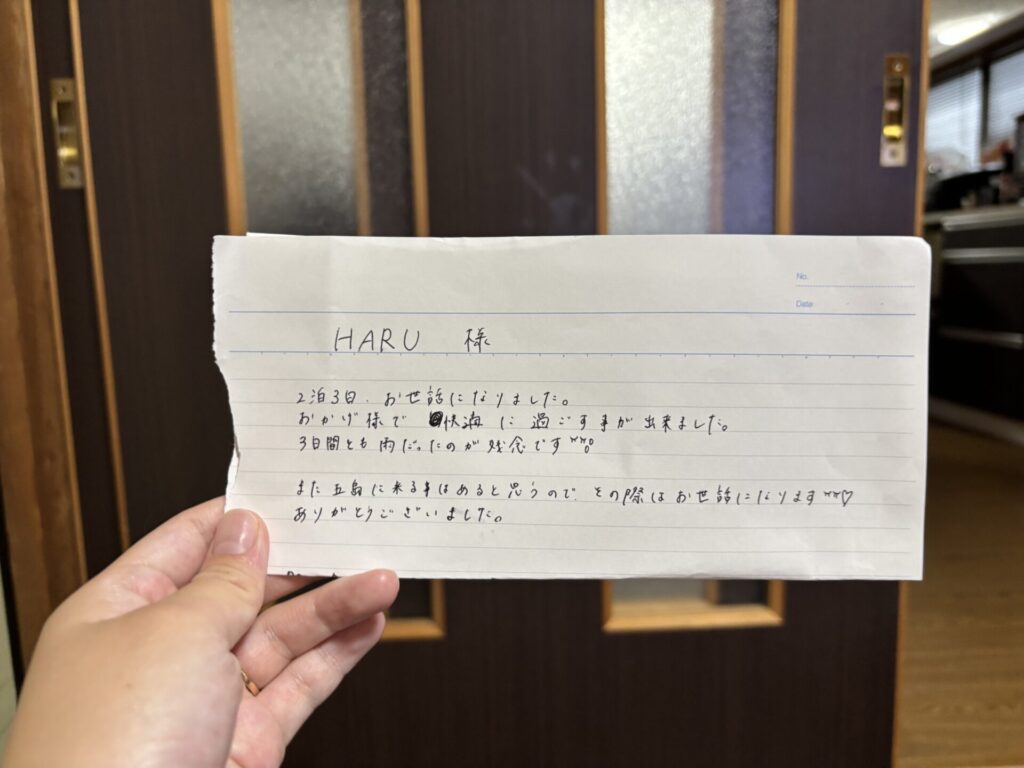 No.
Date
HARU 様
2泊3日、お世話になりました。
おかげ様で 快適に過ごす事が出来ました。
3日間とも雨だったのが残念です^^。
また五島に来る事はあると思うので、その際はお世話になります^^♡
ありがとうございました。